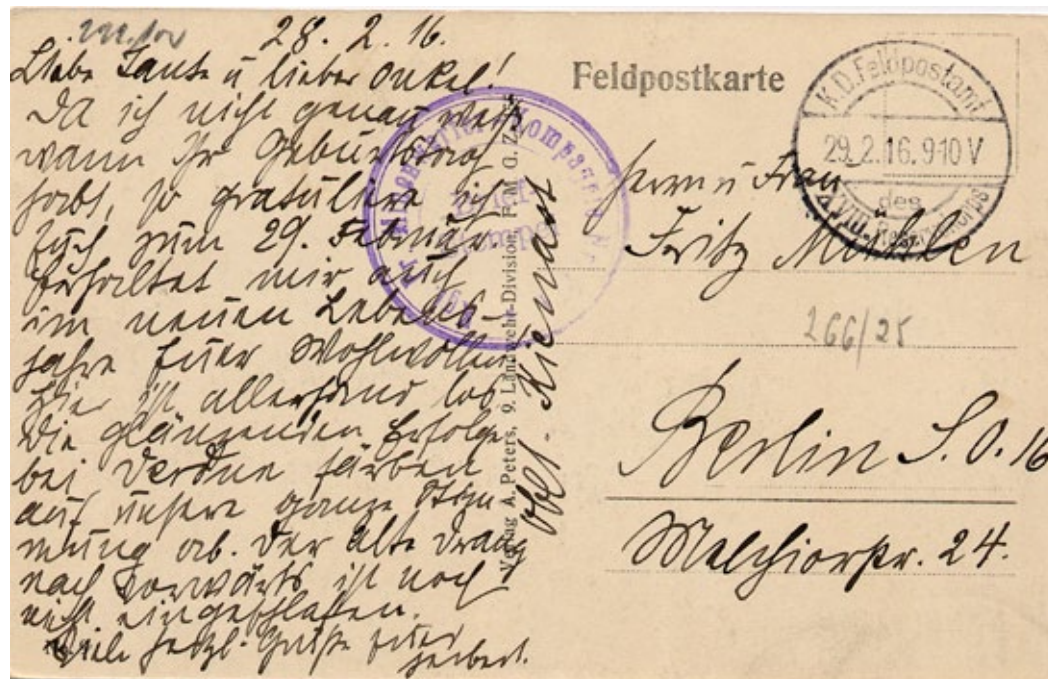 28. 2. 16.
Liebe Tante u lieber Onkel!
Da ich nicht genau weiß
wann Ihr Geburtstag
habt, so gratuliere ich
Euch zum 29. Februar.
Erhaltet mir auch
im neuen Lebens-
jahre Euer Wohlwollen!
Hier ist allerhand los
Die glänzenden Erfolge
bei Verdun färben
auf unsere ganze Stim
mung ab. Der alte Drang
nach vorwärts ist noch
nicht eingeschlafen.
Viele herzl. Grüße Euer
Herbert.
Kienast
Verlag A. Peters, 9. Landwehr-Division, F. M. G. Z.
Brief
Stempel
Feldpostkarte
K.D. Feldpostamt
29.2.16.9-10V
des
XVIII. Reservekorps
Herrn u Frau
Fritz
266/25
Berlin S.O. 16
Melchiorstr. 24.